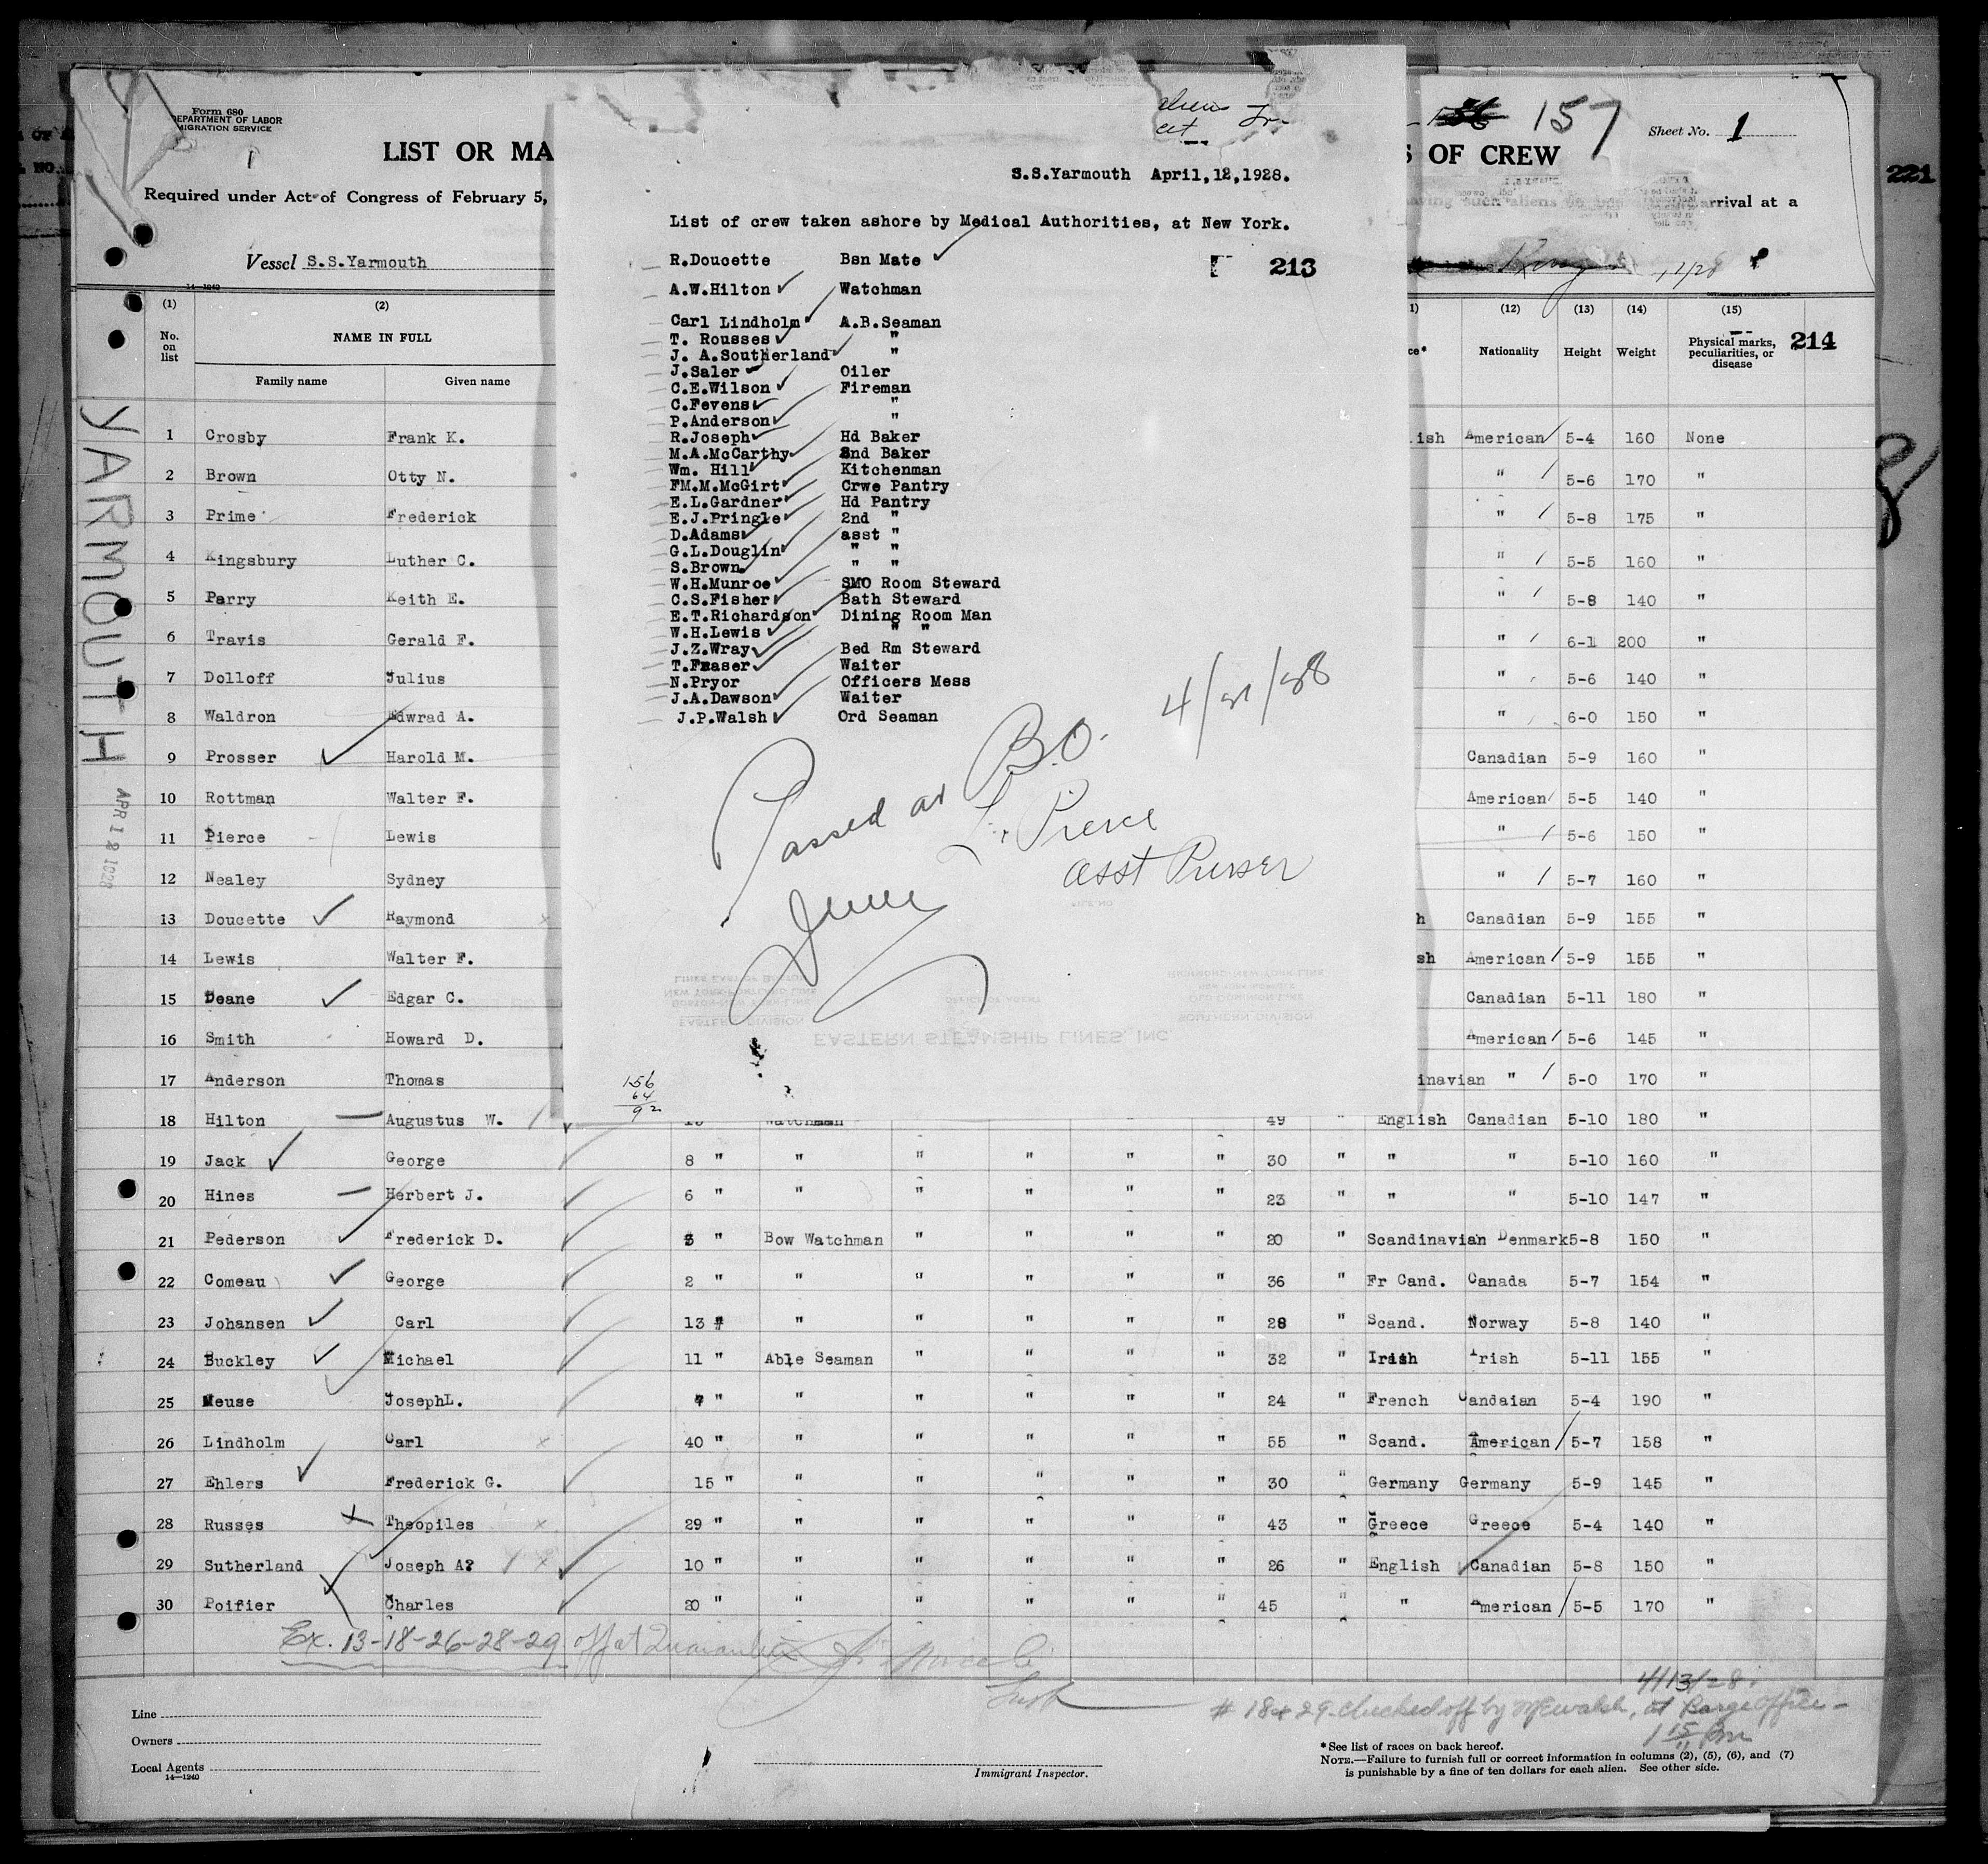 Form 680
DEPARTMENT OF LABOR
MIGRATION SERVICE
LIST OR MA
S OF CREW
157
Sheet No. 1
Required under Act of Congress of February 5,
arrival at a
221
Vessel S.S.Yarmouth
S.S.Yarmouth April,12,1928.
List of crew taken ashore by Medical Authorities, at New York.
213
R.Doucette Bsn Mate
A.W.Hilton Watchman
Carl Lindholm A.B.Seaman
T. Rousses "
J. A.Southerland "
J.Saler Oiler
C.E.Wilson Fireman
C.Fevens "
P.Anderson "
R.Joseph Hd Baker
M.A.McCarthy 2nd Baker
Wm. Hill Kitchenman
FM.M.McGirt Crwe Pantry
E.L.Gardner Hd Pantry
E.J.Pringle 2nd "
D.Adams asst "
G.L.Douglin " "
S.Brown " "
W.H.Munroe SMO Room Steward
C.S.Fisher Bath Steward
E.T.Richardson Dining Room Man
W.H.Lewis " "
J.Z.Wray Bed Rm Steward
T.Fraser Waiter
N.Pryor Officers Mess
J.A.Dawson Waiter
J.P.Walsh Ord Seaman
Passed at B.O.
Pierce
asst Purser
EASTERN STEAMSHIP LINES, INC.
156
64
92
YARMOUTH
APR 12 1928
(1) (2) (12) (13) (14) (15)
No. on list
NAME IN FULL
Family name Given name
Nationality Height Weight Physical marks, peculiarities, or disease
214
1 Crosby Frank K. ish American 5-4 160 None
2 Brown Otty N. " 5-6 170 "
3 Prime Frederick " 5-8 175 "
4 Kingsbury Luther C. " 5-5 160 "
5 Parry Keith E. " 5-8 140 "
6 Travis Gerald F. " 6-1 200 "
7 Dolloff Julius " 5-6 140 "
8 Waldron Edwrad A. " 6-0 150 "
9 Prosser Harold M. Canadian 5-9 160 "
10 Rottman Walter F. American 5-5 140 "
11 Pierce Lewis " 5-6 150 "
12 Nealey Sydney " 5-7 160 "
13 Doucette Raymond h Canadian 5-9 155 "
14 Lewis Walter F. sh American 5-9 155 "
15 Deane Edgar C. Canadian 5-11 180 "
16 Smith Howard D. American 5-6 145 "
17 Anderson Thomas inavian " 5-0 170 "
18 Hilton Augustus W. Watchman 49 " English Canadian 5-10 180 "
19 Jack George 8 " " " " " " 30 " " " 5-10 160 "
20 Hines Herbert J. 6 " " " " " " 23 " " " 5-10 147 "
21 Pederson Frederick D. 3 " Bow Watchman " " " " 20 " Scandinavian Denmark 5-8 150 "
22 Comeau George 2 " " " " " " 36 " Fr Cand. Canada 5-7 154 "
23 Johansen Carl 13 " " " " " " 28 " Scand. Norway 5-8 140 "
24 Buckley Michael 11 " Able Seaman " " " " 32 " Irish Irish 5-11 155 "
25 Meuse JosephL. " " " " " " 24 " French Candaian 5-4 190 "
26 Lindholm Carl 40 " " " " " " 55 " Scand. American 5-7 158 "
27 Ehlers Frederick G. 15 " " " " " " 30 " Germany Germany 5-9 145 "
28 Russes Theopiles 29 " " " " " " 43 " Greece Greece 5-4 140 "
29 Sutherland Joseph A? 10 " " " " " " 26 " English Canadian 5-8 150 "
30 Poifier Charles 20 " " " " " " 45 " " American 5-5 170 "
Ex. 13-18-26-28-29 off at Quarantine
4/13/28
# 18 & 29 checked off by McWalsh, at Barge Office
Line
Owners
Local Agents
14—1240
Immigrant Inspector.
* See list of races on back hereof.
NOTE.—Failure to furnish full or correct information in columns (2), (5), (6), and (7)
is punishable by a fine of ten dollars for each alien. See other side.